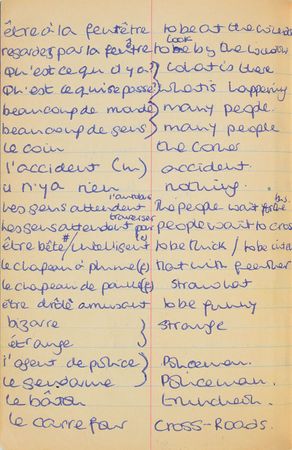 être à la fenêtre to be at the window
regarder par la fenêtre to look by the window
Qu'est ce qu'il y a? } what is there
Qu'est ce qui se passe? what's happening
beaucoup de monde } many people
beaucoup de gens many people.
le coin the corner
l'accident (m) accident.
il n'y a rien nothing.
Les gens attendent l'autobus The people wait for the bus.
Les gens attendent pour traverser people wait to cross
être bête ≠ intelligent (e) to be thick / to be
le chapeau à plume (f) Hat with feather
le chapeau de paille (f) Straw hat
être drôle amusant to be funny
bizarre } strange
étrange
l'agent de police } Policeman.
le gendarme Policeman.
le bâton truncheon.
le carrefour Cross-Roads.